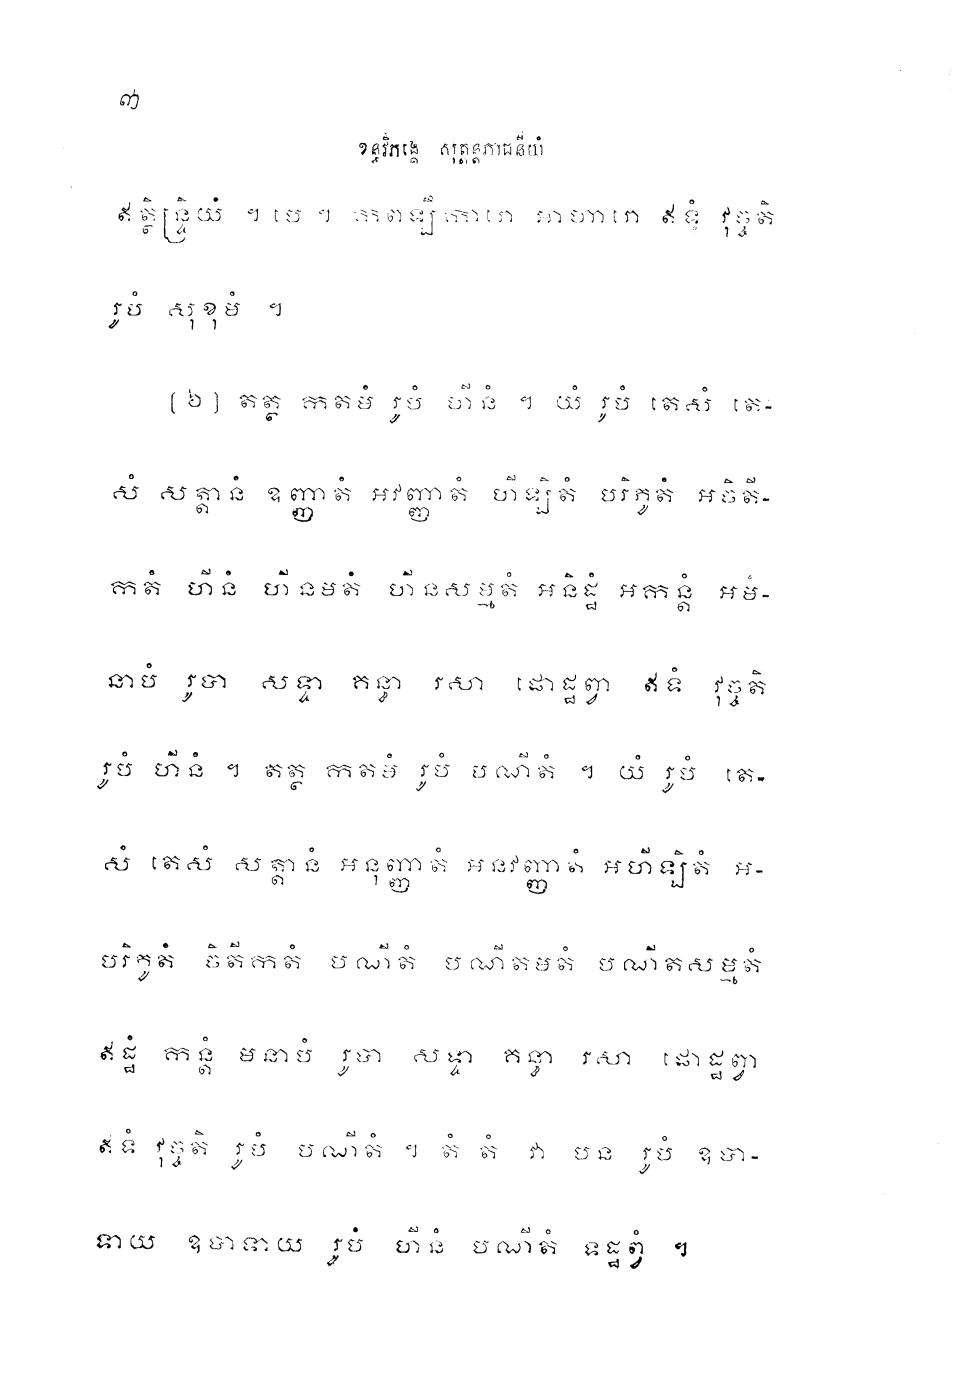 ៣
ខន្ធវិភង្គេ សុត្តន្តភាជនីយំ
ឥត្ថិន្ទ្រិយំ ។ បេ ។ កពឡីការោ អាហារោ ឥទំ វុច្ចតិ
រូបំ សុខុមំ ។
(៦) តត្ថ កតមំ រូបំ ហីនំ ។ យំ រូបំ តេសំ តេ-
សំ សត្តានំ ឧញ្ញាតំ អវញ្ញាតំ ហីឡិតំ បរិភូតំ អចិតី-
កតំ ហីនំ ហីនមតំ ហីនសម្មតំ អនិដ្ឋំ អកន្តំ អម-
នាបំ រូបា សទ្ទា គន្ធា រសា ផោដ្ឋព្វា ឥទំ វុច្ចតិ
រូបំ ហីនំ ។ តត្ថ កតមំ រូបំ បណីតំ ។ យំ រូបំ តេ-
សំ តេសំ សត្តានំ អនុញ្ញាតំ អនវញ្ញាតំ អហីឡិតំ អ-
បរិភូតំ ចិតីកតំ បណីតំ បណីតមតំ បណីតសម្មតំ
ឥដ្ឋំ កន្តំ មនាបំ រូបា សទ្ទា គន្ធា រសា ផោដ្ឋព្វា
ឥទំ វុច្ចតិ រូបំ បណីតំ ។ តំ តំ វា បន រូបំ ឧបា-
ទាយ ឧបាទាយ រូបំ ហីនំ បណីតំ ទដ្ឋព្វំ ។